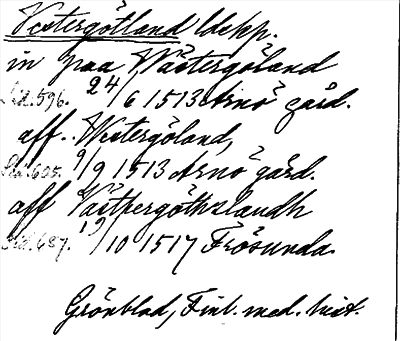 Västergötland ldskp.
in paa Wästergöland
Sid. 596. 24/6 1513 Arnö gård.
aff Westergöland,
Sid. 605. 9/9 1513 Arnö gård.
aff Västhergöthslandh
Sid. 687. 19/10 1517 Frösunda.
Grönblad, Finl. med. hist.